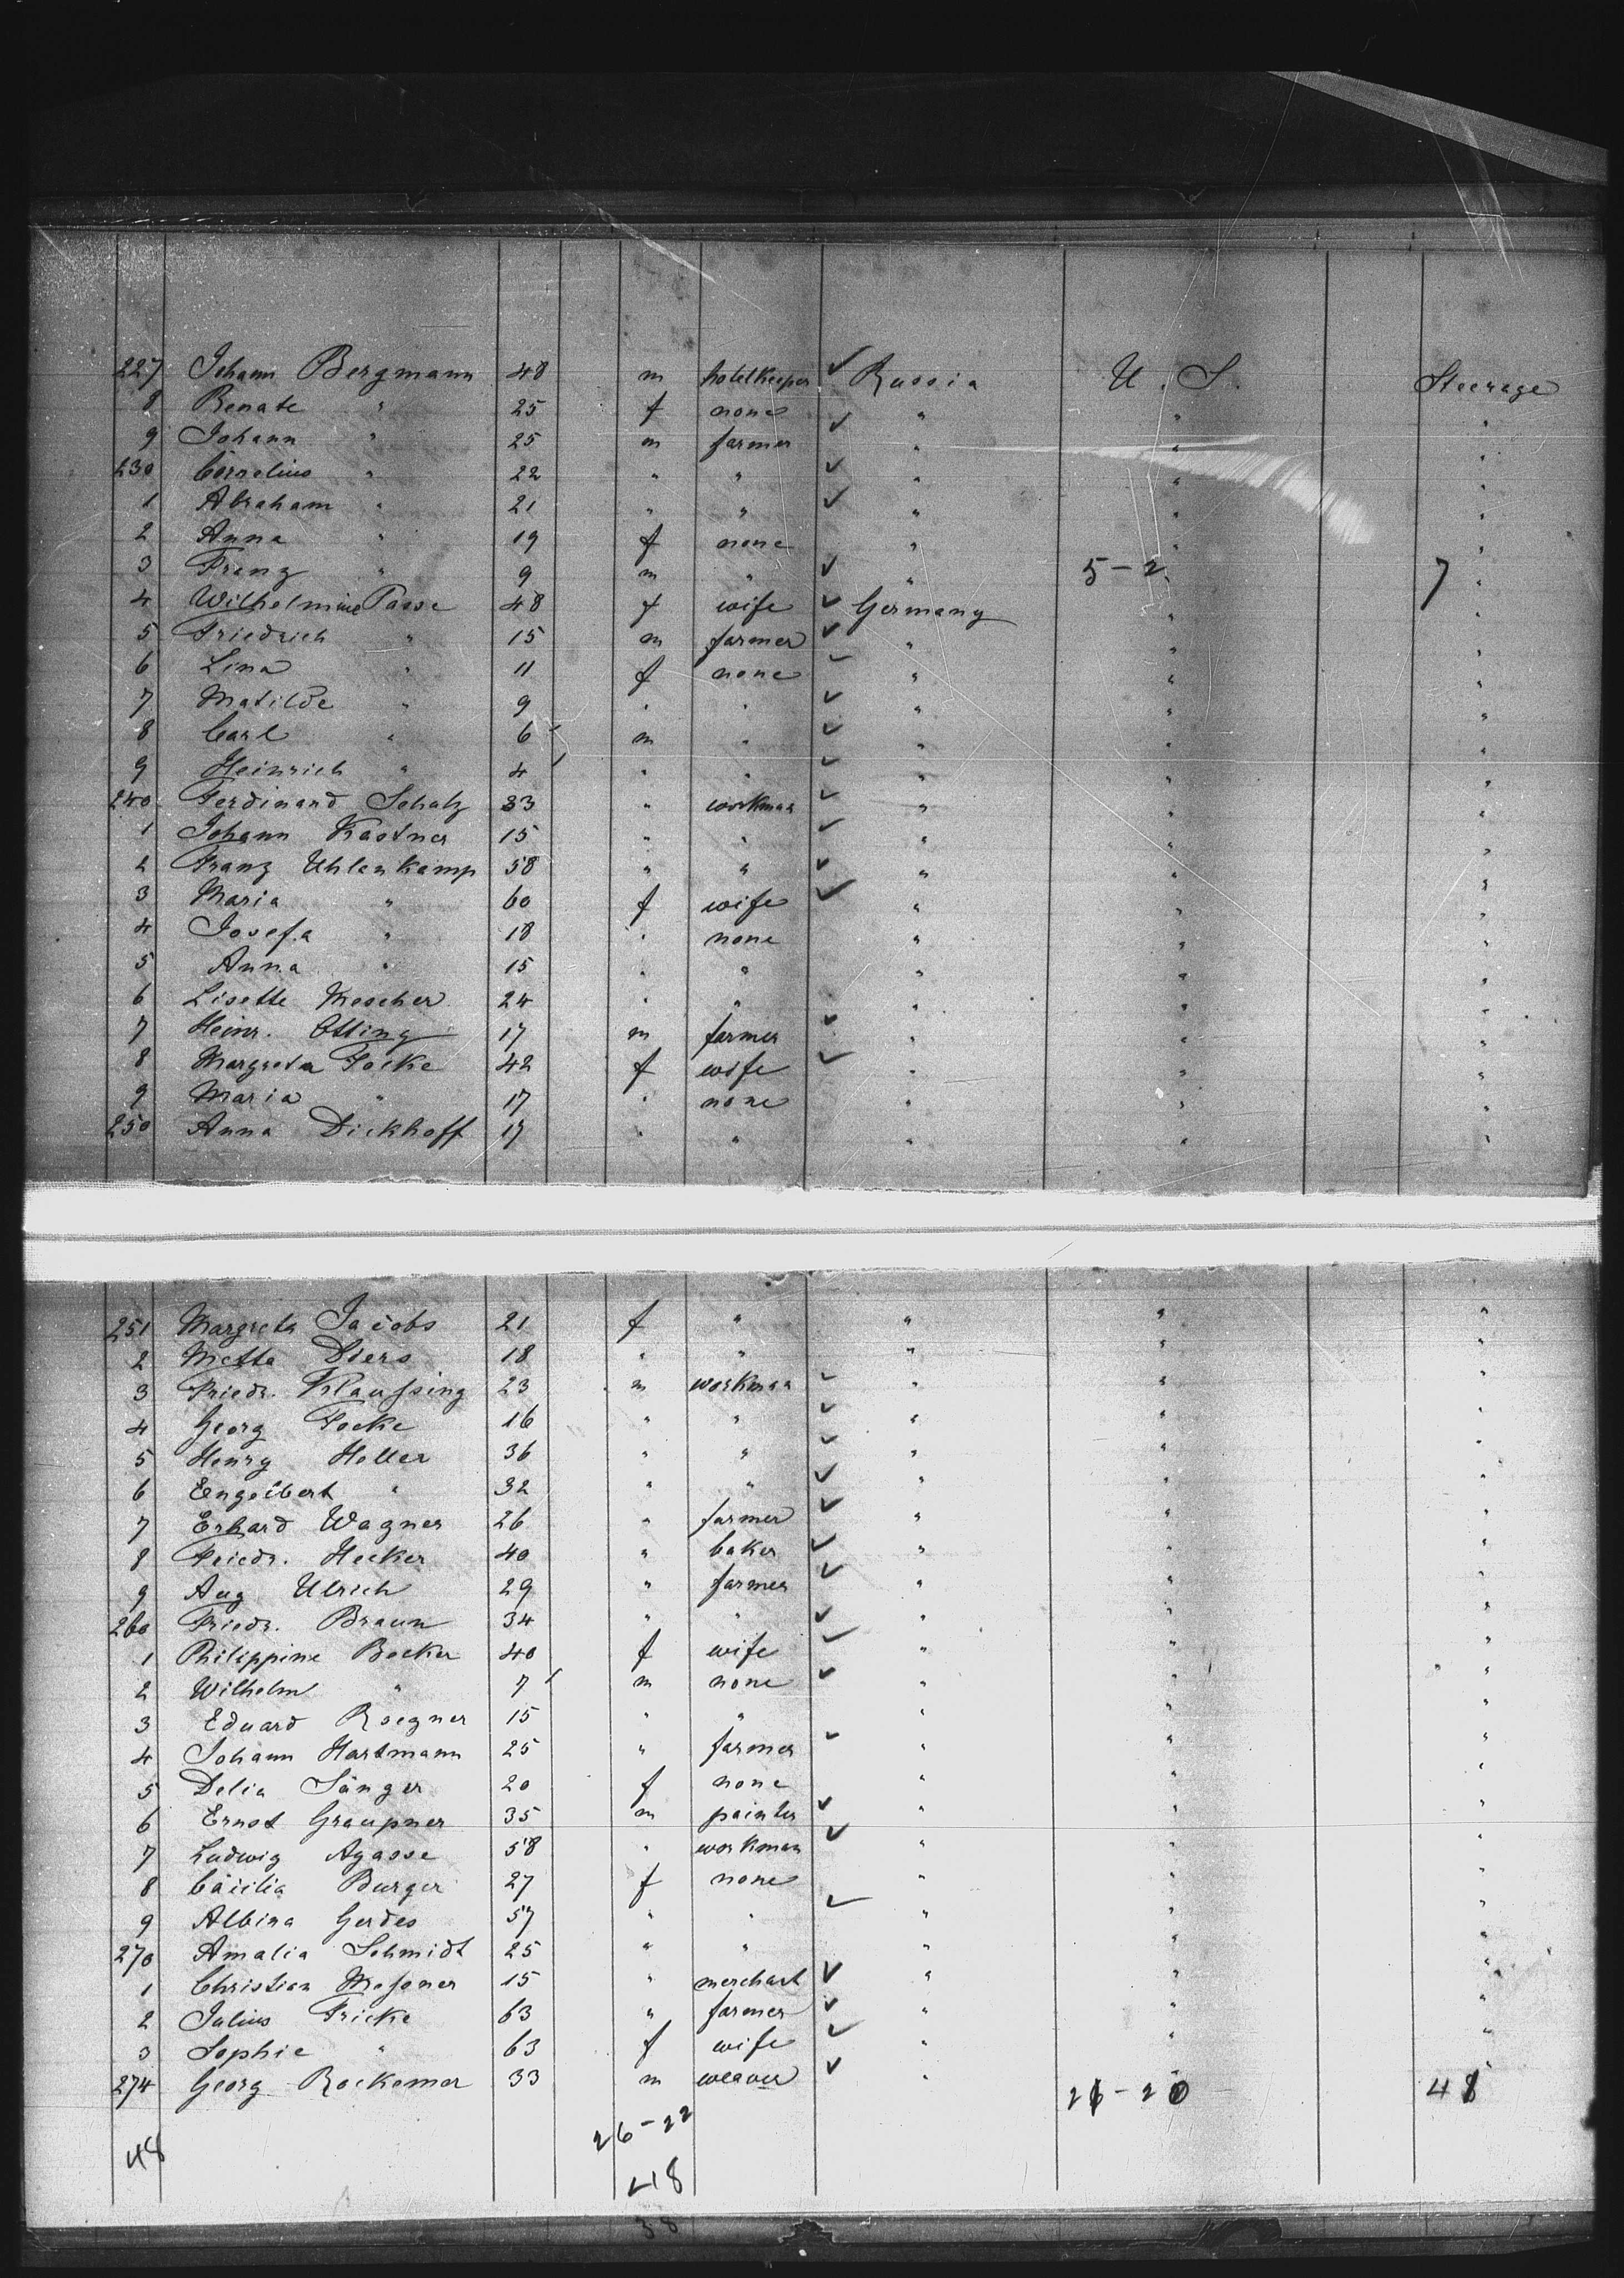 227 Johann Bergmann 48 m hotelkeeper ✓ Russia U. S. Steerage
8 Renate " 25 f none ✓ " " "
9 Johann " 25 m farmer " " "
230 Cornelius " 22 " " ✓ " " "
1 Abraham " 21 " " ✓ " " "
2 Anna " 19 f none " " "
3 Franz " 9 m " ✓ " 5-2 " 7 "
4 Wilhelmine Passe 48 f wife ✓ Germany " "
5 Friedrich " 15 m farmer ✓ " " "
6 Lina " 11 f none ✓ " " "
7 Matilde " 9 " " ✓ " " "
8 Carl " 6 m " ✓ " " "
9 Heinrich " 4 " " ✓ " " "
240 Ferdinand Schatz 33 " workman ✓ " " "
1 Johann Kastner 15 " " ✓ " " "
2 Franz Uhlenkamp 58 " " ✓ " " "
3 Maria " 60 f wife ✓ " " "
4 Josefa " 18 " none " " "
5 Anna " 15 " " " " "
6 Lisette Mescher 24 " " " " "
7 Heinr. Otting 17 m farmer ✓ " " "
8 Margreta Focke 42 f wife ✓ " " "
9 Maria " 17 " none " " "
250 Anna Dickhoff 17 " " " " "
251 Margreta Jacobs 21 f " " " "
2 Metta Diers 18 " " " " "
3 Friedr. Klaufsing 23 m workman ✓ " " "
4 Georg Focke 16 " " ✓ " " "
5 Henry Heller 36 " " ✓ " " "
6 Engelbert " 32 " " ✓ " " "
7 Erhard Wagner 26 " farmer ✓ " " "
8 Friedr. Hecker 40 " baker ✓ " " "
9 Aug Ulrich 29 " farmer ✓ " " "
260 Friedr. Braun 34 " " ✓ " " "
1 Philippine Becker 40 f wife ✓ " " "
2 Wilhelm " 7 m none ✓ " " "
3 Eduard Roegner 15 " " " " "
4 Johann Hartmann 25 " farmer ✓ " " "
5 Delia Sänger 20 f none " " "
6 Ernst Graupner 35 m painter ✓ " " "
7 Ludwig Agasse 58 " workman ✓ " " "
8 Cäcilia Burger 27 f none " " "
9 Albina Gerdes 57 " " ✓ " " "
270 Amalia Schmidt 25 " " " " "
1 Christian Mefsner 15 " merchant ✓ " " "
2 Julius Fricke 63 " farmer ✓ " " "
3 Sophie " 63 f wife ✓ " " "
274 Georg Rockemer 33 m weaver ✓ "
48 26-22
38